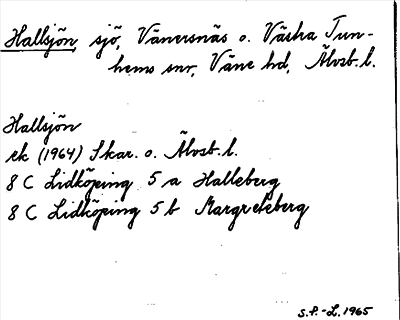 Hallsjön, sjö, Vänersnäs o. Västra Tun-
hems snr, Väne hd, Älvsb. l.
Hallsjön
ek (1964) Skar. o. Älvsb. l.
8 C Lidköping 5 a Halleberg
8 C Lidköping 5 b Margreteberg
S.P.-L. 1965